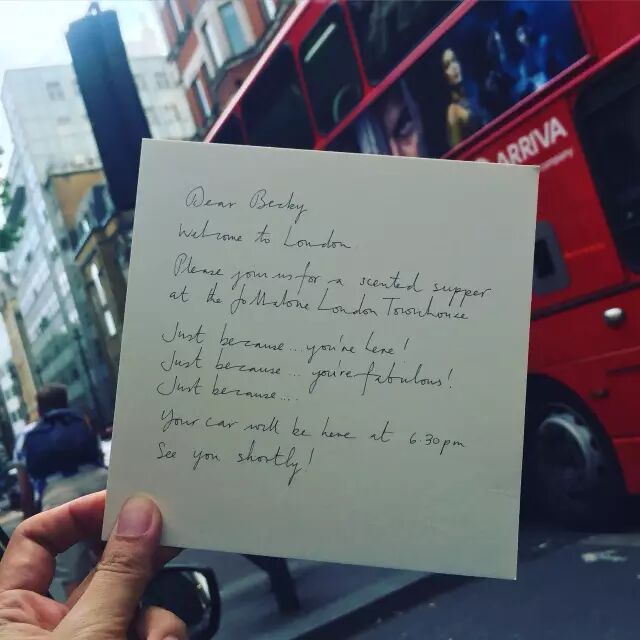 Dear Becky
Welcome to London.
Please join us for a scented supper
at the Jo Malone London Townhouse
Just because...you're here!
Just because... you're fabulous!
Just because....
Your car will be here at 6.30pm
See you shortly!
ARRIVA